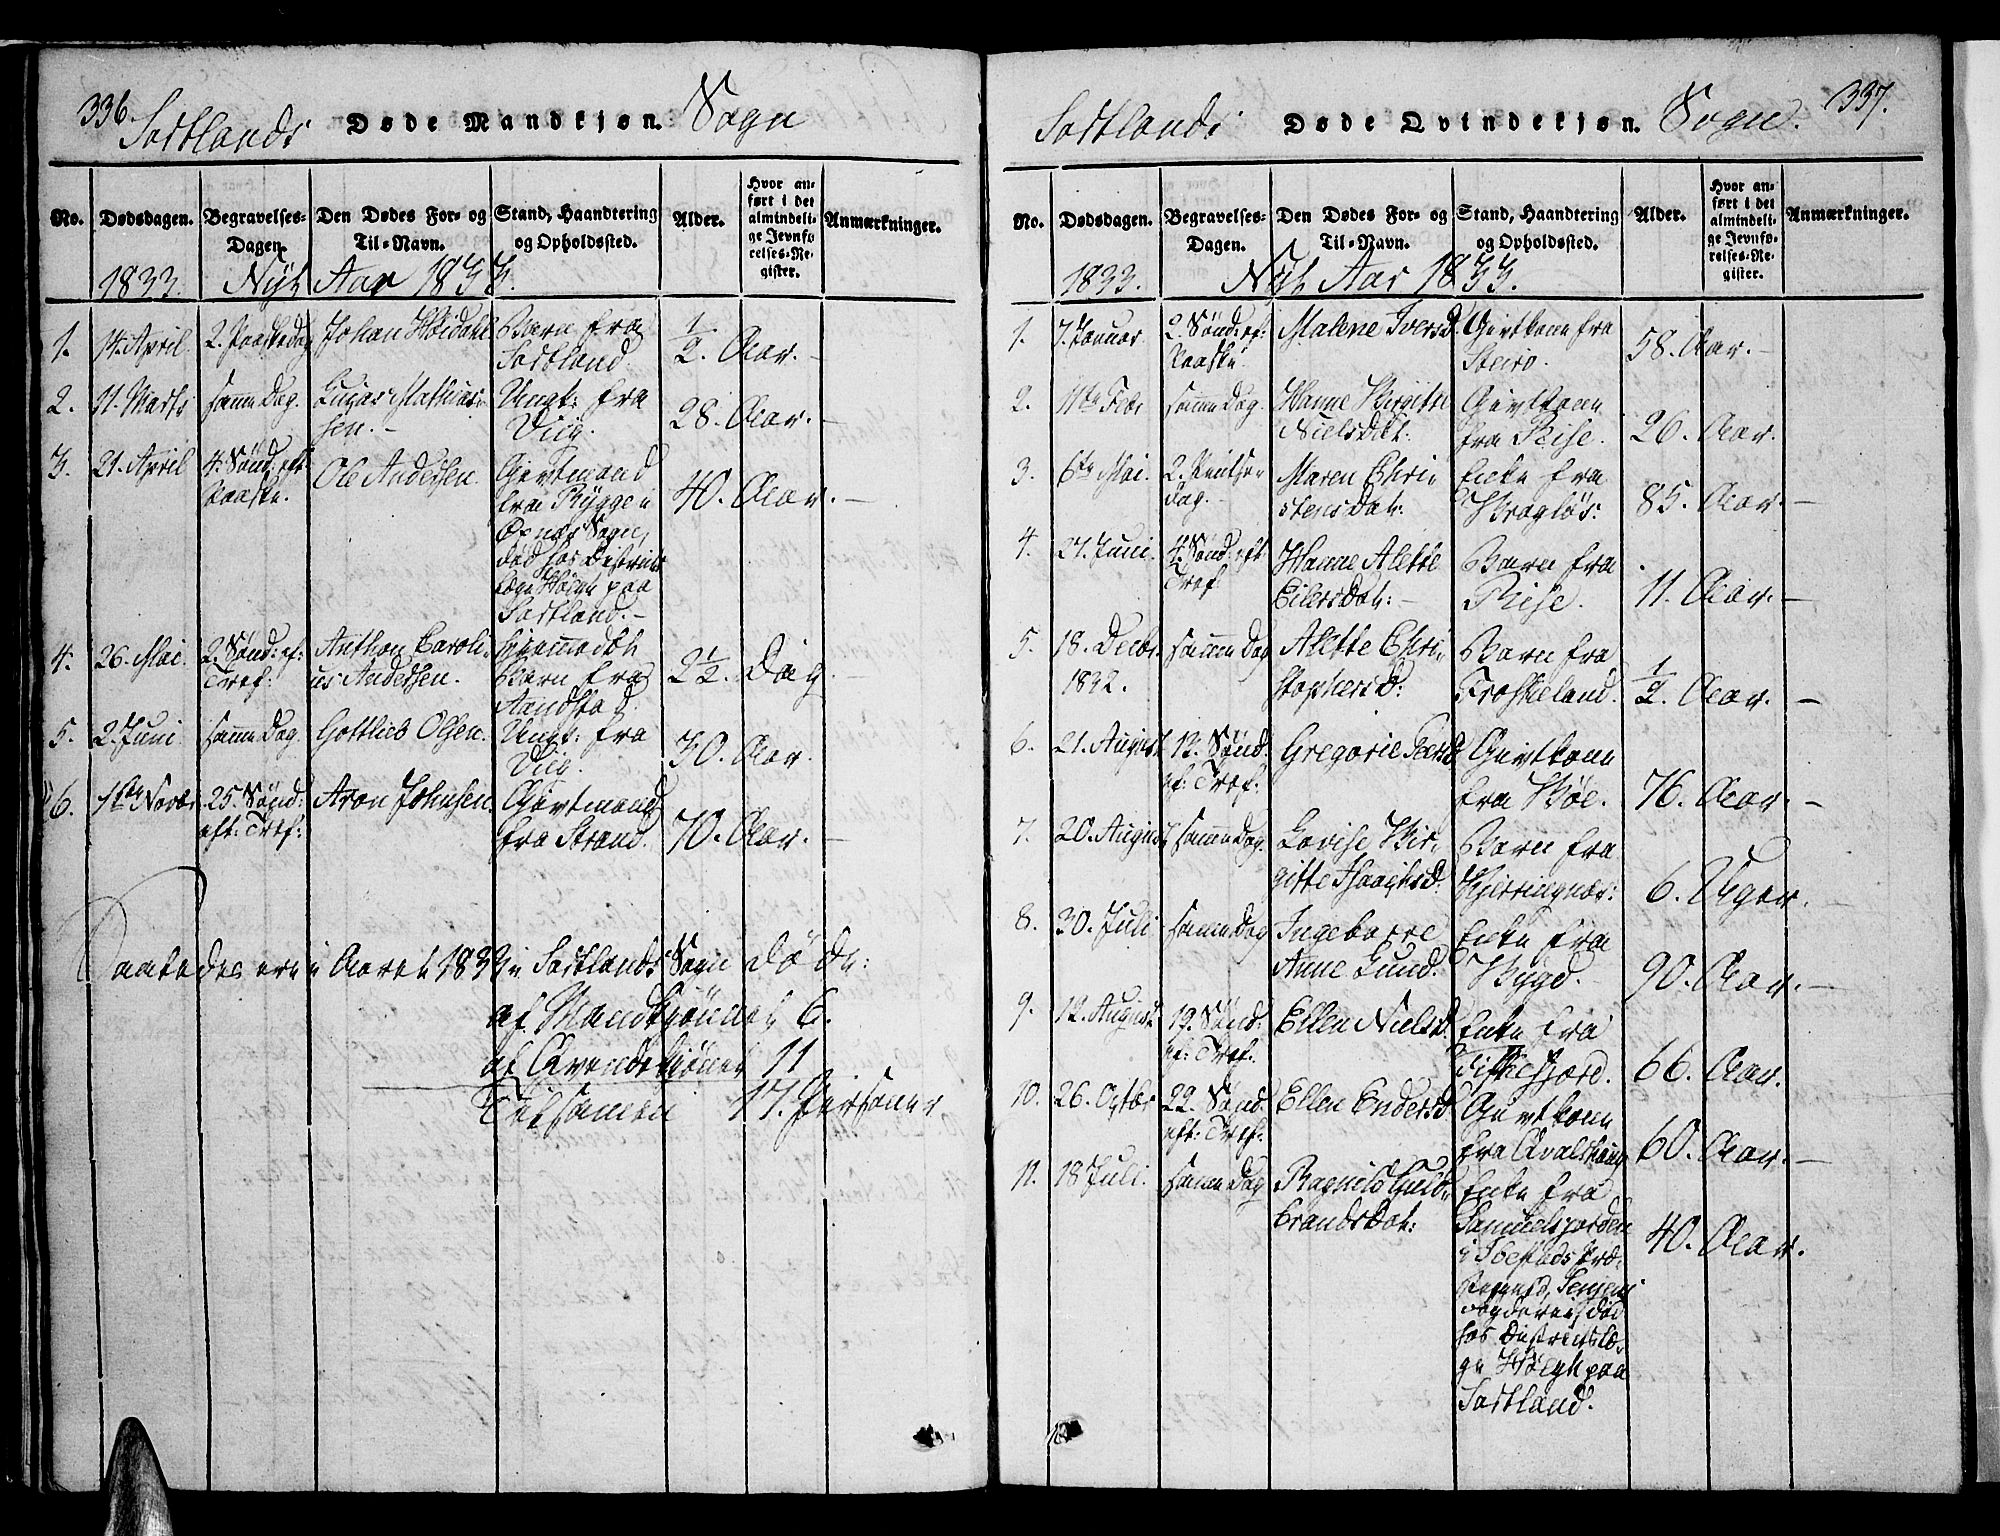 336
Sortlands Døde Mandkjøn. Sogn
No. Dødsdagen. Begravelses-Dagen. Den Dødes For- og Til-Navn. Stand, Haandtering og Opholdssted. Alder. Hvor anført i det almindelige Jevnførelses-Register. Anmærkninger.
1833. Nyt Aar 1833.
1. 14. April 2. Paaskedag Johan Høidahl Barn fra
Sortland. 1/2. Aar.
2. 11. Marts samme Dag. Mathias-
sen. Ungk: fra
Viig. 28. Aar.
3. 21. April 4. Sønd: eft:
Paaske. Ole Andersen. Giftmand
fra Rygge i
Øxnæs Sogn,
død hos Districts
læge Høegh paa
Sortland. 40. Aar.
4. 26. Mai. 2. Sønd: ef:
Tref: Anthon Caroli-
us Andersen. hjemmedøbt
Barn fra
Aandstad. 2 1/2 Dag.
5. 2. Juni samme Dag. Gottlieb Olsen. Ungk: fra
Viig. 30. Aar.
6. Novbr 25. Sønd:
eft: Tref: Aron Johnsen. Giftmand
fra Strand. 70. Aar.
Saaledes ere i Aaret 1833 i Sortlands Sogn døde:
af Mandkjønnet 6.
af Qvindekjønnet 11
Tilsammen 17. Personer
337.
Sortlands Døde Qvindekjøn. Sogn.
No. Dødsdagen. Begravelses-Dagen. Den Dødes For- og Til-Navn. Stand, Haandtering og Opholdssted. Alder. Hvor anført i det almindelige Jevnførelses-Register. Anmærkninger.
1833. Nyt Aar 1833.
1. 7. Januar 2. Sønd: ef:
Paaske Malene Iversd. Giftkone fra
Steiro. 58. Aar.
2. 11te Febr samme Dag. Hanne Birgitte
Nielsdat: Giftkone
fra Rise. 26. Aar.
3. 6te Mai. 2. Pintse
dag. Maren Chri-
stensdat: Enke fra
85. Aar.
4. 27. Juni. 4. Sønd: eft:
Tref Hanne Alette
Eilersdat: Barn fra
Rise. 11. Aar.
5. 18. Decbr.
1832. samme Dag Alette Chri-
stophersd: Barn fra
Froskeland. 1/2. Aar.
6. 21. August 12. Sønd.
ef: Tref: Gregorie Peersd Giftkone
fra Bøe. 76. Aar.
7. 20. August samme Dag. Lovise Bir-
gitte Barn fra
Kjerringnæs: 6. Uger.
8. 30. Juli samme Dag Ingeborre
Anne Lund. Enke fra
Bygd. 90. Aar.
9. 12. August 19. Sønd:
ef: Tref: Ellen Nielsd. Enke fra
Fiskefjord. 66. Aar.
10. 26. Octbr 22. Sønd.
eft: Tref: Ellen Endersd Giftkone
fra Qvalshaug 60. Aar.
11. 18. Juli. samme Dag Ragnild Guld-
brandsdat: Enke fra
i Ibestads Præ-
stegield, Senjens
Fogderei, død
hos Districtslæ-
ge Høegh paa
Sortland. 40. Aar.